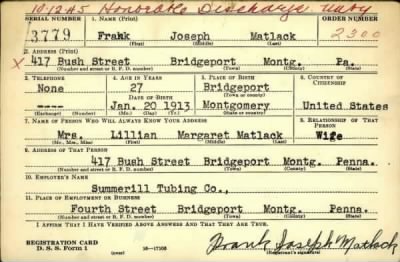 10-12-45 Honorable Discharge Navy
SERIAL NUMBER 1. NAME (Print) ORDER NUMBER
3779 Frank Joseph Matlack 2300
(First) (Middle) (Last)
2. ADDRESS (Print)
X 417 Bush Street Bridgeport Montg. Pa.
(Number and street or R. F. D. number) (Town) (County) (State)
3. TELEPHONE 4. AGE IN YEARS 5. PLACE OF BIRTH 6. COUNTRY OF CITIZENSHIP
None 27 Bridgeport
DATE OF BIRTH (Town or county)
---- Jan. 20 1913 Montgomery United States
(Exchange) (Number) (Mo.) (Day) (Yr.) (State or country)
7. NAME OF PERSON WHO WILL ALWAYS KNOW YOUR ADDRESS 8. RELATIONSHIP OF THAT PERSON
Mrs. Lillian Margaret Matlack Wife
(Mr., Mrs., Miss) (First) (Middle) (Last)
9. ADDRESS OF THAT PERSON
417 Bush Street Bridgeport Montg. Penna.
(Number and street or R. F. D. number) (Town) (County) (State)
10. EMPLOYER'S NAME
Summerill Tubing Co.,
11. PLACE OF EMPLOYMENT OR BUSINESS
Fourth Street Bridgeport Montg. Penna.
(Number and street or R. F. D. number) (Town) (County) (State)
I AFFIRM THAT I HAVE VERIFIED ABOVE ANSWERS AND THAT THEY ARE TRUE.
REGISTRATION CARD
D. S. S. Form 1 16—17105 Frank Joseph Matlack
(Registrant's signature)